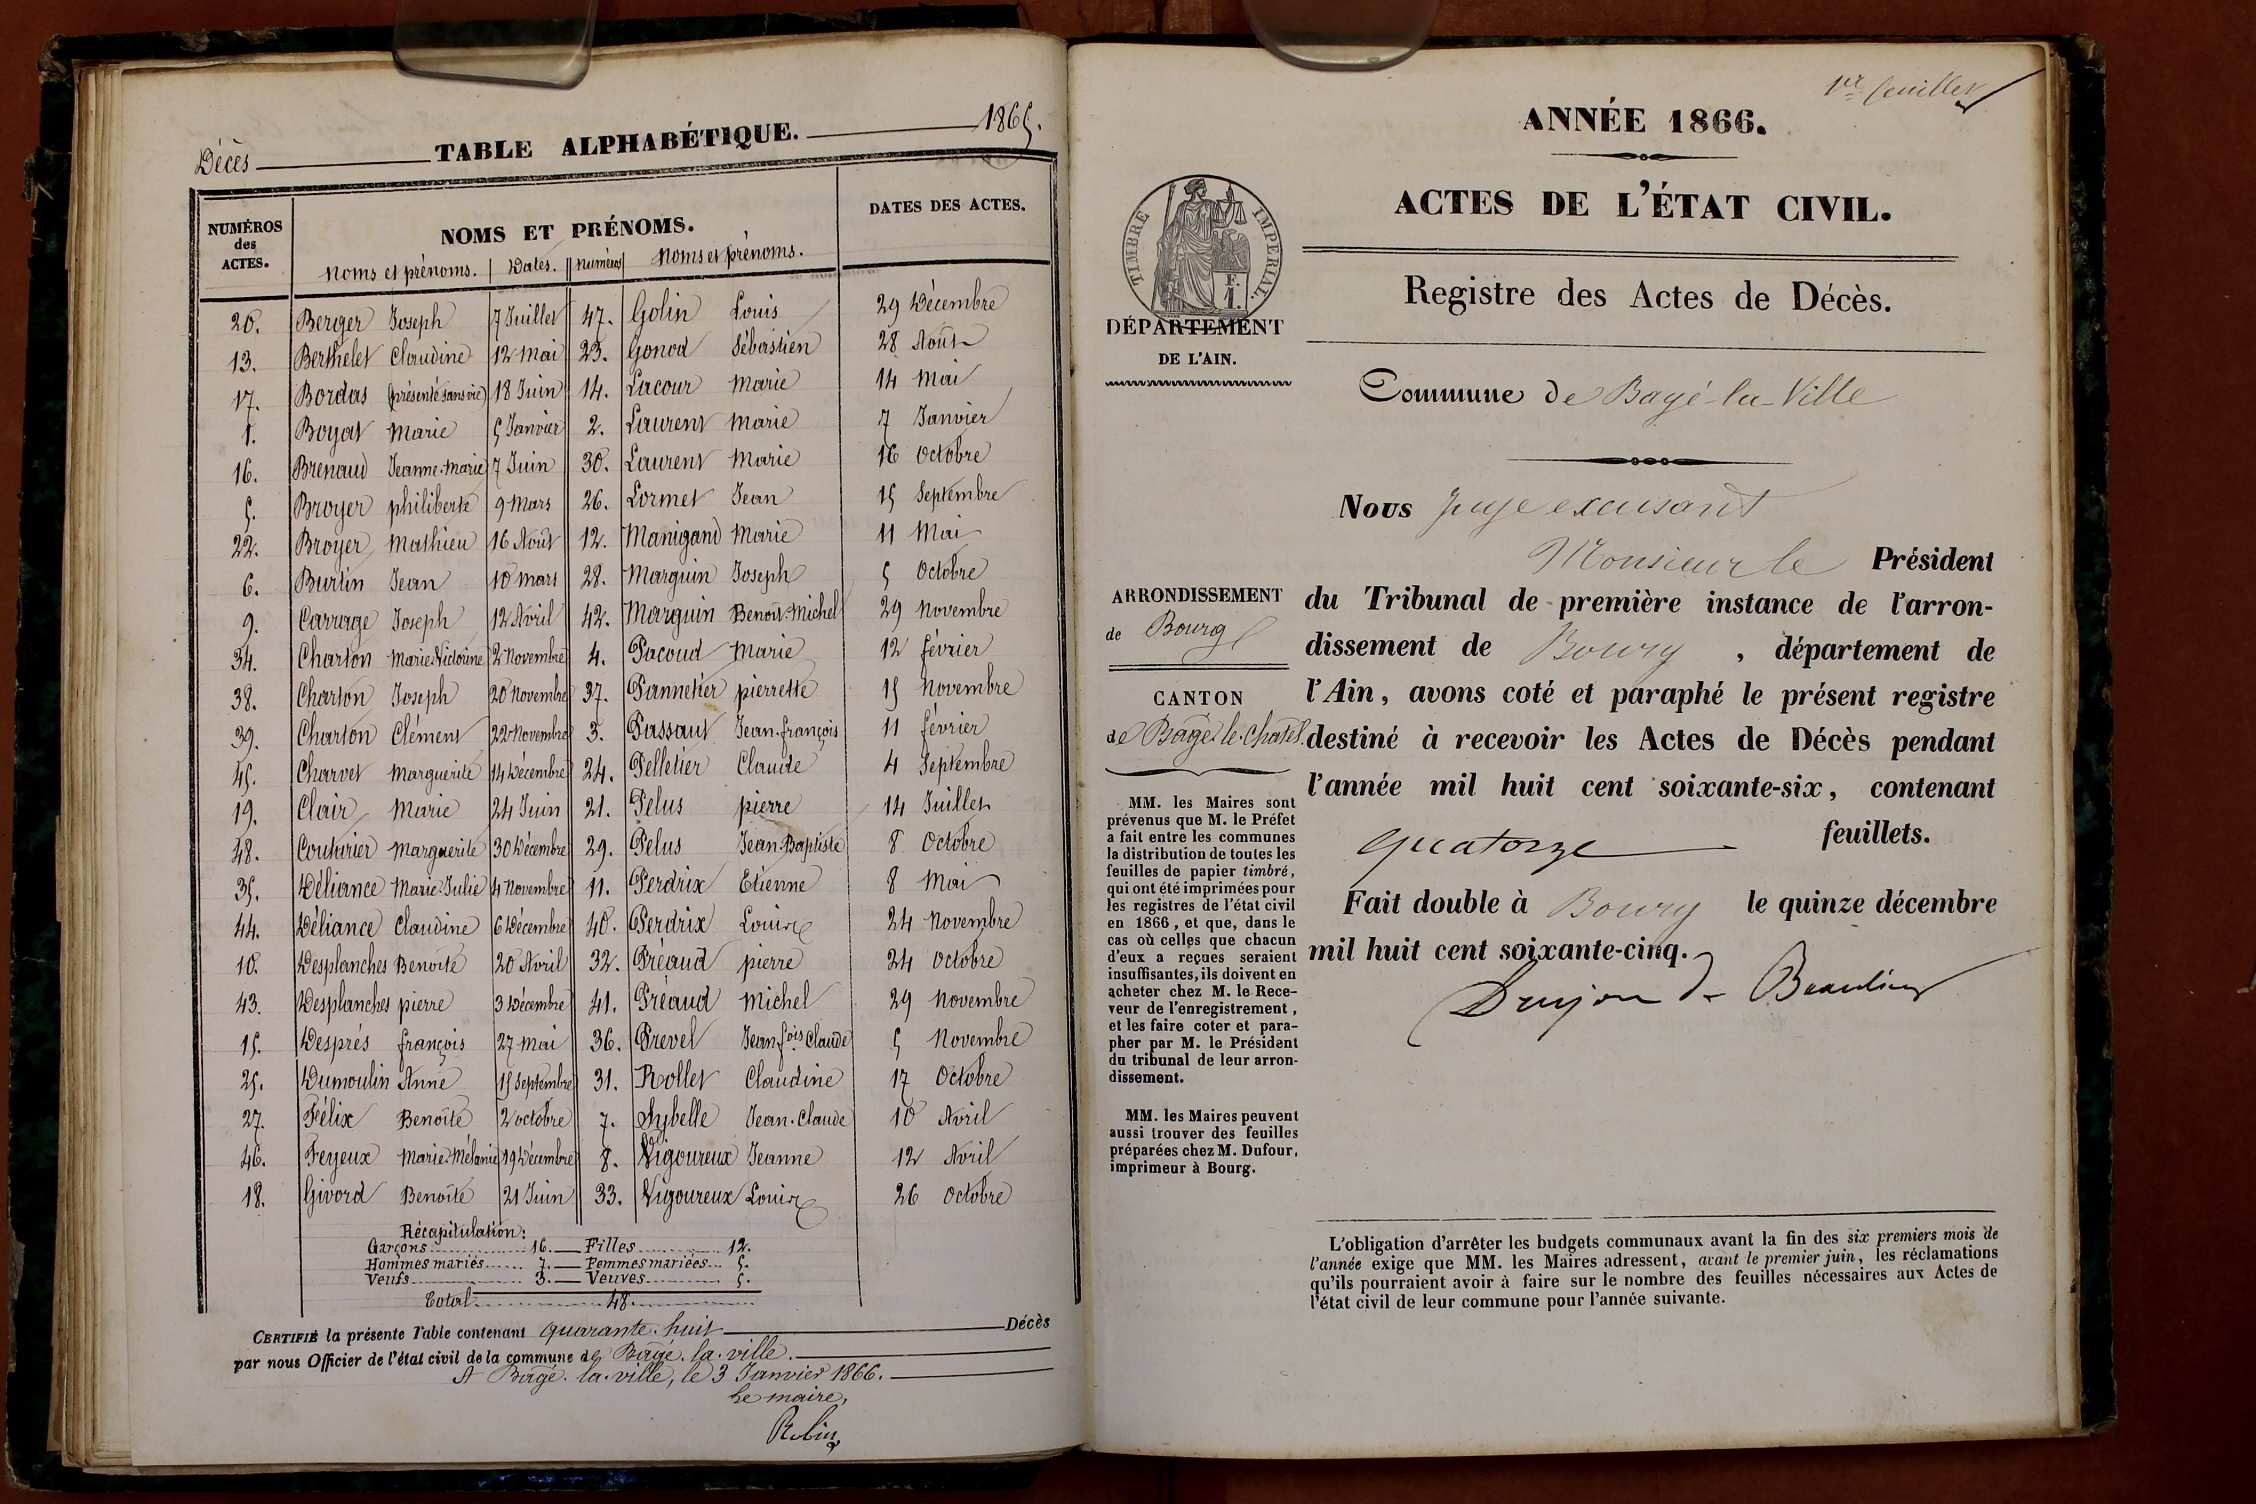 Décès TABLE ALPHABÉTIQUE. 1865.
NUMÉROS des ACTES. NOMS ET PRÉNOMS. DATES DES ACTES.
Noms et prénoms. Dates. Numéros Noms et prénoms.
20. Berger Joseph 7 Juillet 47. Golin Louis 29 Décembre
13. Berthelet Claudine 12 Mai 23. Gonod Sébastien 28 Août
17. Bordas (présenté sans vie) 18 Juin 14. Lacour Marie 14 Mai
1. Boyat Marie 5 Janvier 2. Laurent Marie 7 Janvier
16. Brenaud Jeanne-Marie 7 Juin 30. Laurent Marie 16 Octobre
5. Broyer philiberte 9 Mars 26. Lormet Jean 15 Septembre
22. Broyer Mathieu 16 Août 12. Manigand Marie 11 Mai
6. Burtin Jean 10 mars 28. Marguin Joseph 5 Octobre
9. Carruge Joseph 12 Avril 42. Marguin Benoît-Michel 29 Novembre
34. Charton Marie-Victorine 2 Novembre 4. Pacoud Marie 12 février
38. Charton Joseph 20 Novembre 37. Pannetier pierrette 15 Novembre
39. Charton Clément 22 Novembre 3. Passaut Jean-françois 11 février
45. Charvet Marguerite 14 Décembre 24. Pelletier Claude 4 Septembre
19. Clair Marie 24 Juin 21. Pelus pierre 14 Juillet
48. Couturier Marguerite 30 Décembre 29. Pelus Jean-Baptiste 8 Octobre
35. Déliance Marie-Julie 4 Novembre 11. Perdrix Etienne 8 Mai
44. Déliance Claudine 6 Décembre 40. Perdrix Louise 24 Novembre
10. Desplanches Benoîte 20 Avril 32. Préaud pierre 24 Octobre
43. Desplanches pierre 3 Décembre 41. Préaud Michel 29 Novembre
15. Després françois 27 Mai 36. Prevel Jean-fois Claude 5 Novembre
25. Dumoulin Anne 15 Septembre 31. Rollet Claudine 17 Octobre
27. Félix Benoîte 2 octobre 7. Sybelle Jean-Claude 10 Avril
46. Feyeux Marie-Mélanie 19 Décembre 8. Vigoureux Jeanne 12 Avril
18. Givord Benoîte 21 Juin 33. Vigoureux Louise 26 Octobre
Récapitulation:
Garçons 16. — Filles 12.
Hommes mariés 7. — Femmes mariées 5.
Veufs 3. — Veuves 5.
Total 48.
CERTIFIÉ la présente Table contenant quarante-huit Décès
par nous Officier de l'état civil de la commune de Bâgé-la-ville.
A Bâgé-la-ville, le 3 Janvier 1866.
Le maire,
Robin
1er feuillet
ANNÉE 1866.
ACTES DE L'ÉTAT CIVIL.
TIMBRE IMPÉRIAL.
F.
1.
Registre des Actes de Décès.
DÉPARTEMENT
DE L'AIN.
Commune de Bagé-la-Ville
Nous Juge excusant
Monsieur le Président
du Tribunal de première instance de l'arron-
dissement de Bourg, département de
l'Ain, avons coté et paraphé le présent registre
destiné à recevoir les Actes de Décès pendant
l'année mil huit cent soixante-six, contenant
quatorze feuillets.
Fait double à Bourg le quinze décembre
mil huit cent soixante-cinq.
Dujon de Beaulieu
ARRONDISSEMENT
de Bourg
CANTON
de Bâgé-le-Châtel
MM. les Maires sont
prévenus que M. le Préfet
a fait entre les communes
la distribution de toutes les
feuilles de papier timbré,
qui ont été imprimées pour
les registres de l'état civil
en 1866, et que, dans le
cas où celles que chacun
d'eux a reçues seraient
insuffisantes, ils doivent en
acheter chez M. le Rece-
veur de l'enregistrement,
et les faire coter et para-
pher par M. le Président
du tribunal de leur arron-
dissement.
MM. les Maires peuvent
aussi trouver des feuilles
préparées chez M. Dufour,
imprimeur à Bourg.
L'obligation d'arrêter les budgets communaux avant la fin des six premiers mois de
l'année exige que MM. les Maires adressent, avant le premier juin, les réclamations
qu'ils pourraient avoir à faire sur le nombre des feuilles nécessaires aux Actes de
l'état civil de leur commune pour l'année suivante.